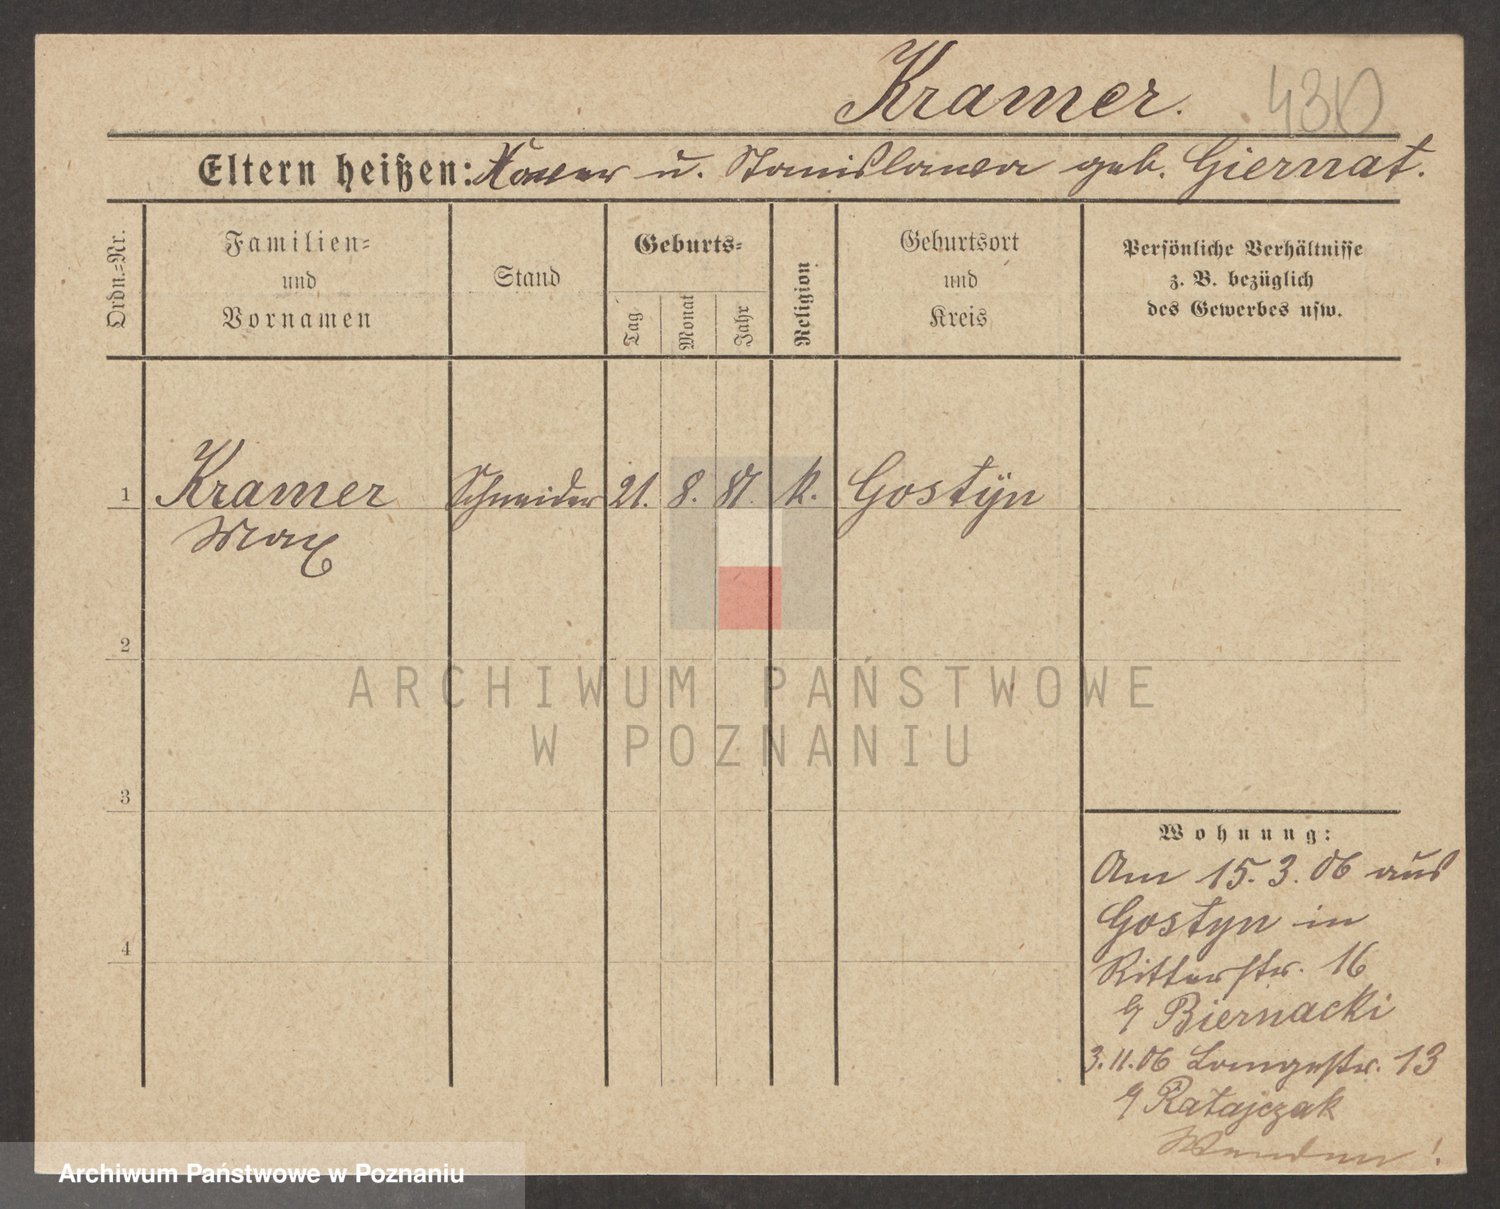 Kramer. 430
Eltern heißen: Xaver u. Stanislawa geb. Giernat.
Ordn.=Nr.
Familien=
und
Vornamen
Stand
Geburts=
Tag
Monat
Jahr
Religion
Geburtsort
und
Kreis
Persönliche Verhältnisse
z. B. bezüglich
des Gewerbes usw.
1 Kramer Schneider 21. 8. 81. k. Gostÿn
Max
2
3
4
Wohnung:
Am 15. 3. 06 aus
Gostyn in
Ritterstr. 16
b/ Biernacki
3.11.06 Langestr. 13
b/ Ratajczak
Wenden!
ARCHIWUM PAŃSTWOWE
W POZNANIU
Archiwum Państwowe w Poznaniu